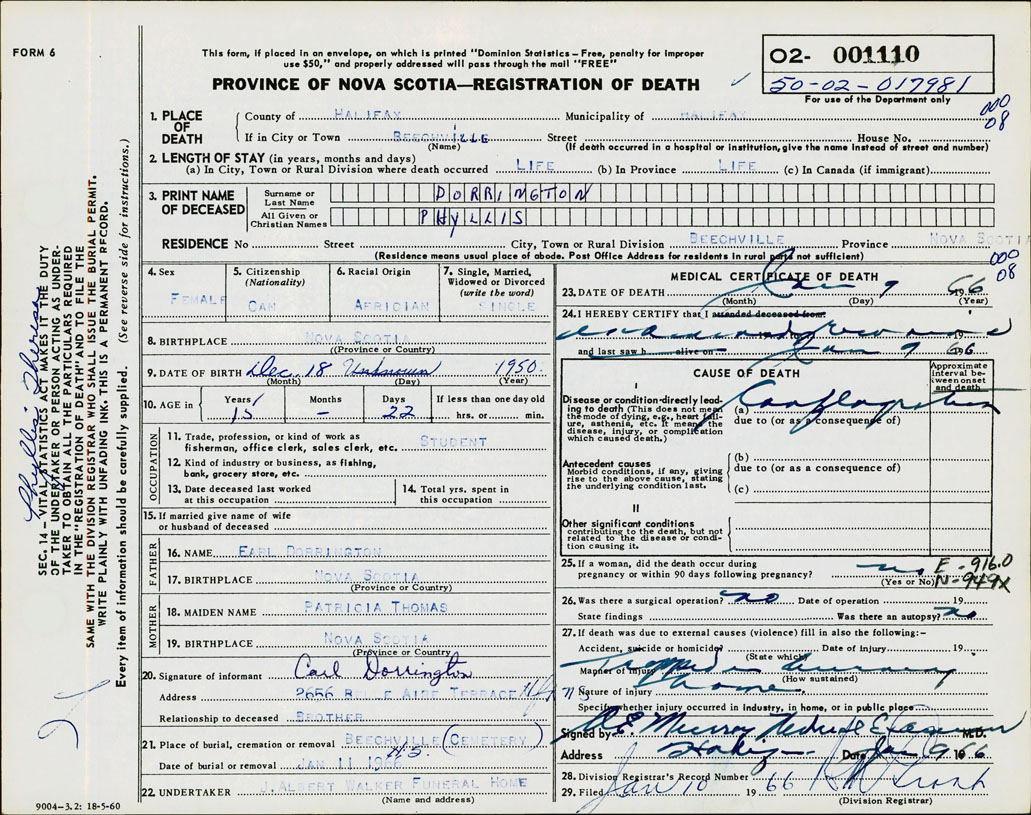 FORM 6
This form, if placed in an envelope, on which is printed "Dominion Statistics – Free, penalty for improper
use $50," and properly addressed will pass through the mail "FREE"
PROVINCE OF NOVA SCOTIA—REGISTRATION OF DEATH
02- 001110
50-02-017981
For use of the Department only
000
08
1. PLACE OF DEATH
County of HALIFAX Municipality of HALIFAX
If in City or Town BEECHVILLE Street House No.
(Name) (If death occurred in a hospital or institution, give the name instead of street and number)
2. LENGTH OF STAY (in years, months and days)
(a) In City, Town or Rural Division where death occurred LIFE (b) In Province LIFE (c) In Canada (if immigrant)
3. PRINT NAME OF DECEASED
Surname or Last Name DORRINGTON
All Given or Christian Names PHYLLIS
RESIDENCE No Street City, Town or Rural Division BEECHVILLE Province NOVA SCOTIA
(Residence means usual place of abode. Post Office Address for residents in rural parts not sufficient)
000
08
4. Sex
FEMALE
5. Citizenship
(Nationality)
CAN
6. Racial Origin
AFRICIAN
7. Single, Married,
Widowed or Divorced
(write the word)
SINGLE
8. BIRTHPLACE NOVA SCOTIA
(Province or Country)
9. DATE OF BIRTH Dec. 18 Unknown 1950
(Month) (Day) (Year)
10. AGE in Years 15 Months – Days 22 If less than one day old hrs. or min.
OCCUPATION
11. Trade, profession, or kind of work as
fisherman, office clerk, sales clerk, etc. STUDENT
12. Kind of industry or business, as fishing,
bank, grocery store, etc.
13. Date deceased last worked
at this occupation
14. Total yrs. spent in
this occupation
15. If married give name of wife
or husband of deceased
FATHER
16. NAME EARL DORRINGTON
17. BIRTHPLACE NOVA SCOTIA
(Province or Country)
MOTHER
18. MAIDEN NAME PATRICIA THOMAS
19. BIRTHPLACE NOVA SCOTIA
(Province or Country)
20. Signature of informant Carl Dorrington
Address 2656 B TERRACE Hfx
Relationship to deceased BROTHER
21. Place of burial, cremation or removal BEECHVILLE (CEMETERY)
Date of burial or removal JAN 11 NS
22. UNDERTAKER J. ALBERT WALKER FUNERAL HOME
(Name and address)
MEDICAL CERTIFICATE OF DEATH
23. DATE OF DEATH Jan 9 1966
(Month) (Day) (Year)
24. I HEREBY CERTIFY that I attended deceased from:
examined remains 19
and last saw h alive on Jan 9 1966
CAUSE OF DEATH
Approximate
interval be-
tween onset
and death
I
Disease or condition directly lead-
ing to death (This does not mean
the mode of dying, e.g., heart fail-
ure, asthenia, etc. It means the
disease, injury, or complication
which caused death.)
(a) Conflagration
due to (or as a consequence of)
Antecedent causes
Morbid conditions, if any, giving
rise to the above cause, stating
the underlying condition last.
(b)
due to (or as a consequence of)
(c)
II
Other significant conditions
contributing to the death, but not
related to the disease or condi-
tion causing it.
25. If a woman, did the death occur during
pregnancy or within 90 days following pregnancy? no
(Yes or No)
E - 916.0
N - 949X
26. Was there a surgical operation? no Date of operation 19
State findings Was there an autopsy? no
27. If death was due to external causes (violence) fill in also the following:–
Accident, suicide or homicide Date of injury 19
(State which)
Manner of injury Trapped in burning
(How sustained)
Nature of injury home.
NS
Specify whether injury occurred in industry, in home, or in public place
Signed by Murray Medical Examiner M.D.
Address Halifax Date Jan 9 1966
28. Division Registrar's Record Number
29. Filed Jan 10 1966
(Division Registrar)
9004–3.2: 18-5-60
Phyllis Theresa
SEC. 14 – VITAL STATISTICS ACT MAKES IT THE DUTY
OF THE UNDERTAKER OR PERSON ACTING AS UNDER-
TAKER TO OBTAIN ALL THE PARTICULARS REQUIRED
IN THE "REGISTRATION OF DEATH" AND TO FILE THE
SAME WITH THE DIVISION REGISTRAR WHO SHALL ISSUE THE BURIAL PERMIT.
WRITE PLAINLY WITH UNFADING INK. THIS IS A PERMANENT RECORD.
Every item of information should be carefully supplied. (See reverse side for instructions.)